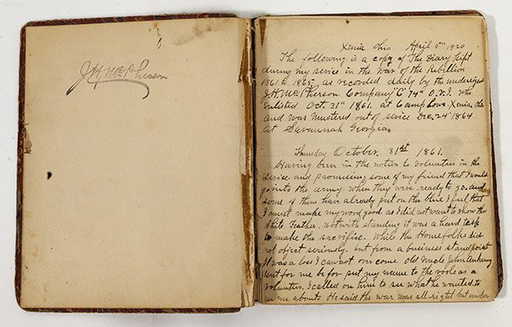 J.H. McPherson
Xenia Ohio April 5th 1920
The following is a copy of The Diary Kept
during my servis in the War of the Rebillion
1861 to 1865, as recorded daily by the undersigned
J.H. McPherson Company "C" 74th O.V.I. who
enlisted Oct. 21st 1861. at Camp Lowe Xenia,
and was mustered out of servis Dec, 24th 1864
at Savannah Georgia
Thursday October, 31st 1861.
Having been in the notion to volunteer in the
servise and promising some of my friend that I would
go into the army when they were ready to go, and
some of them have already put on the blue I feel that
I must make my word good as I did not want to show the
White Feather, notwith standing it was a hard task
to make the sacrifise. While the Home folks did
not object seriously. but from a business standpoint
it was a loss I can not over come. old Uncle John
sent for me before put my name to the rool as a
volunteer. I called on him to see what he wanted to
see me about. He said the war was all right but